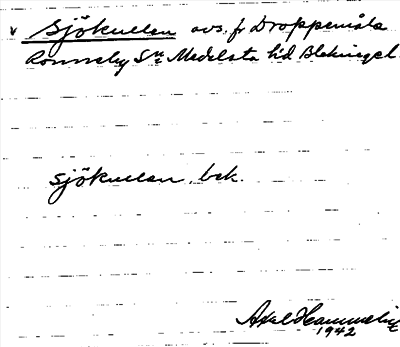 v Sjökullen avs. fr Droppemåla
Ronneby Sn Medelsta hd Blekinge l.
Sjökullen, bek.
Axel
1942